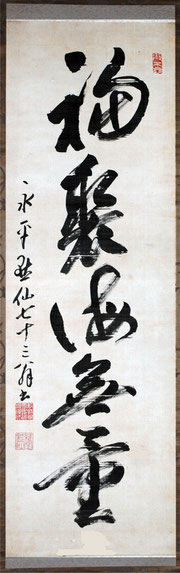 福聚海無量
永平黙仙七十三翁書